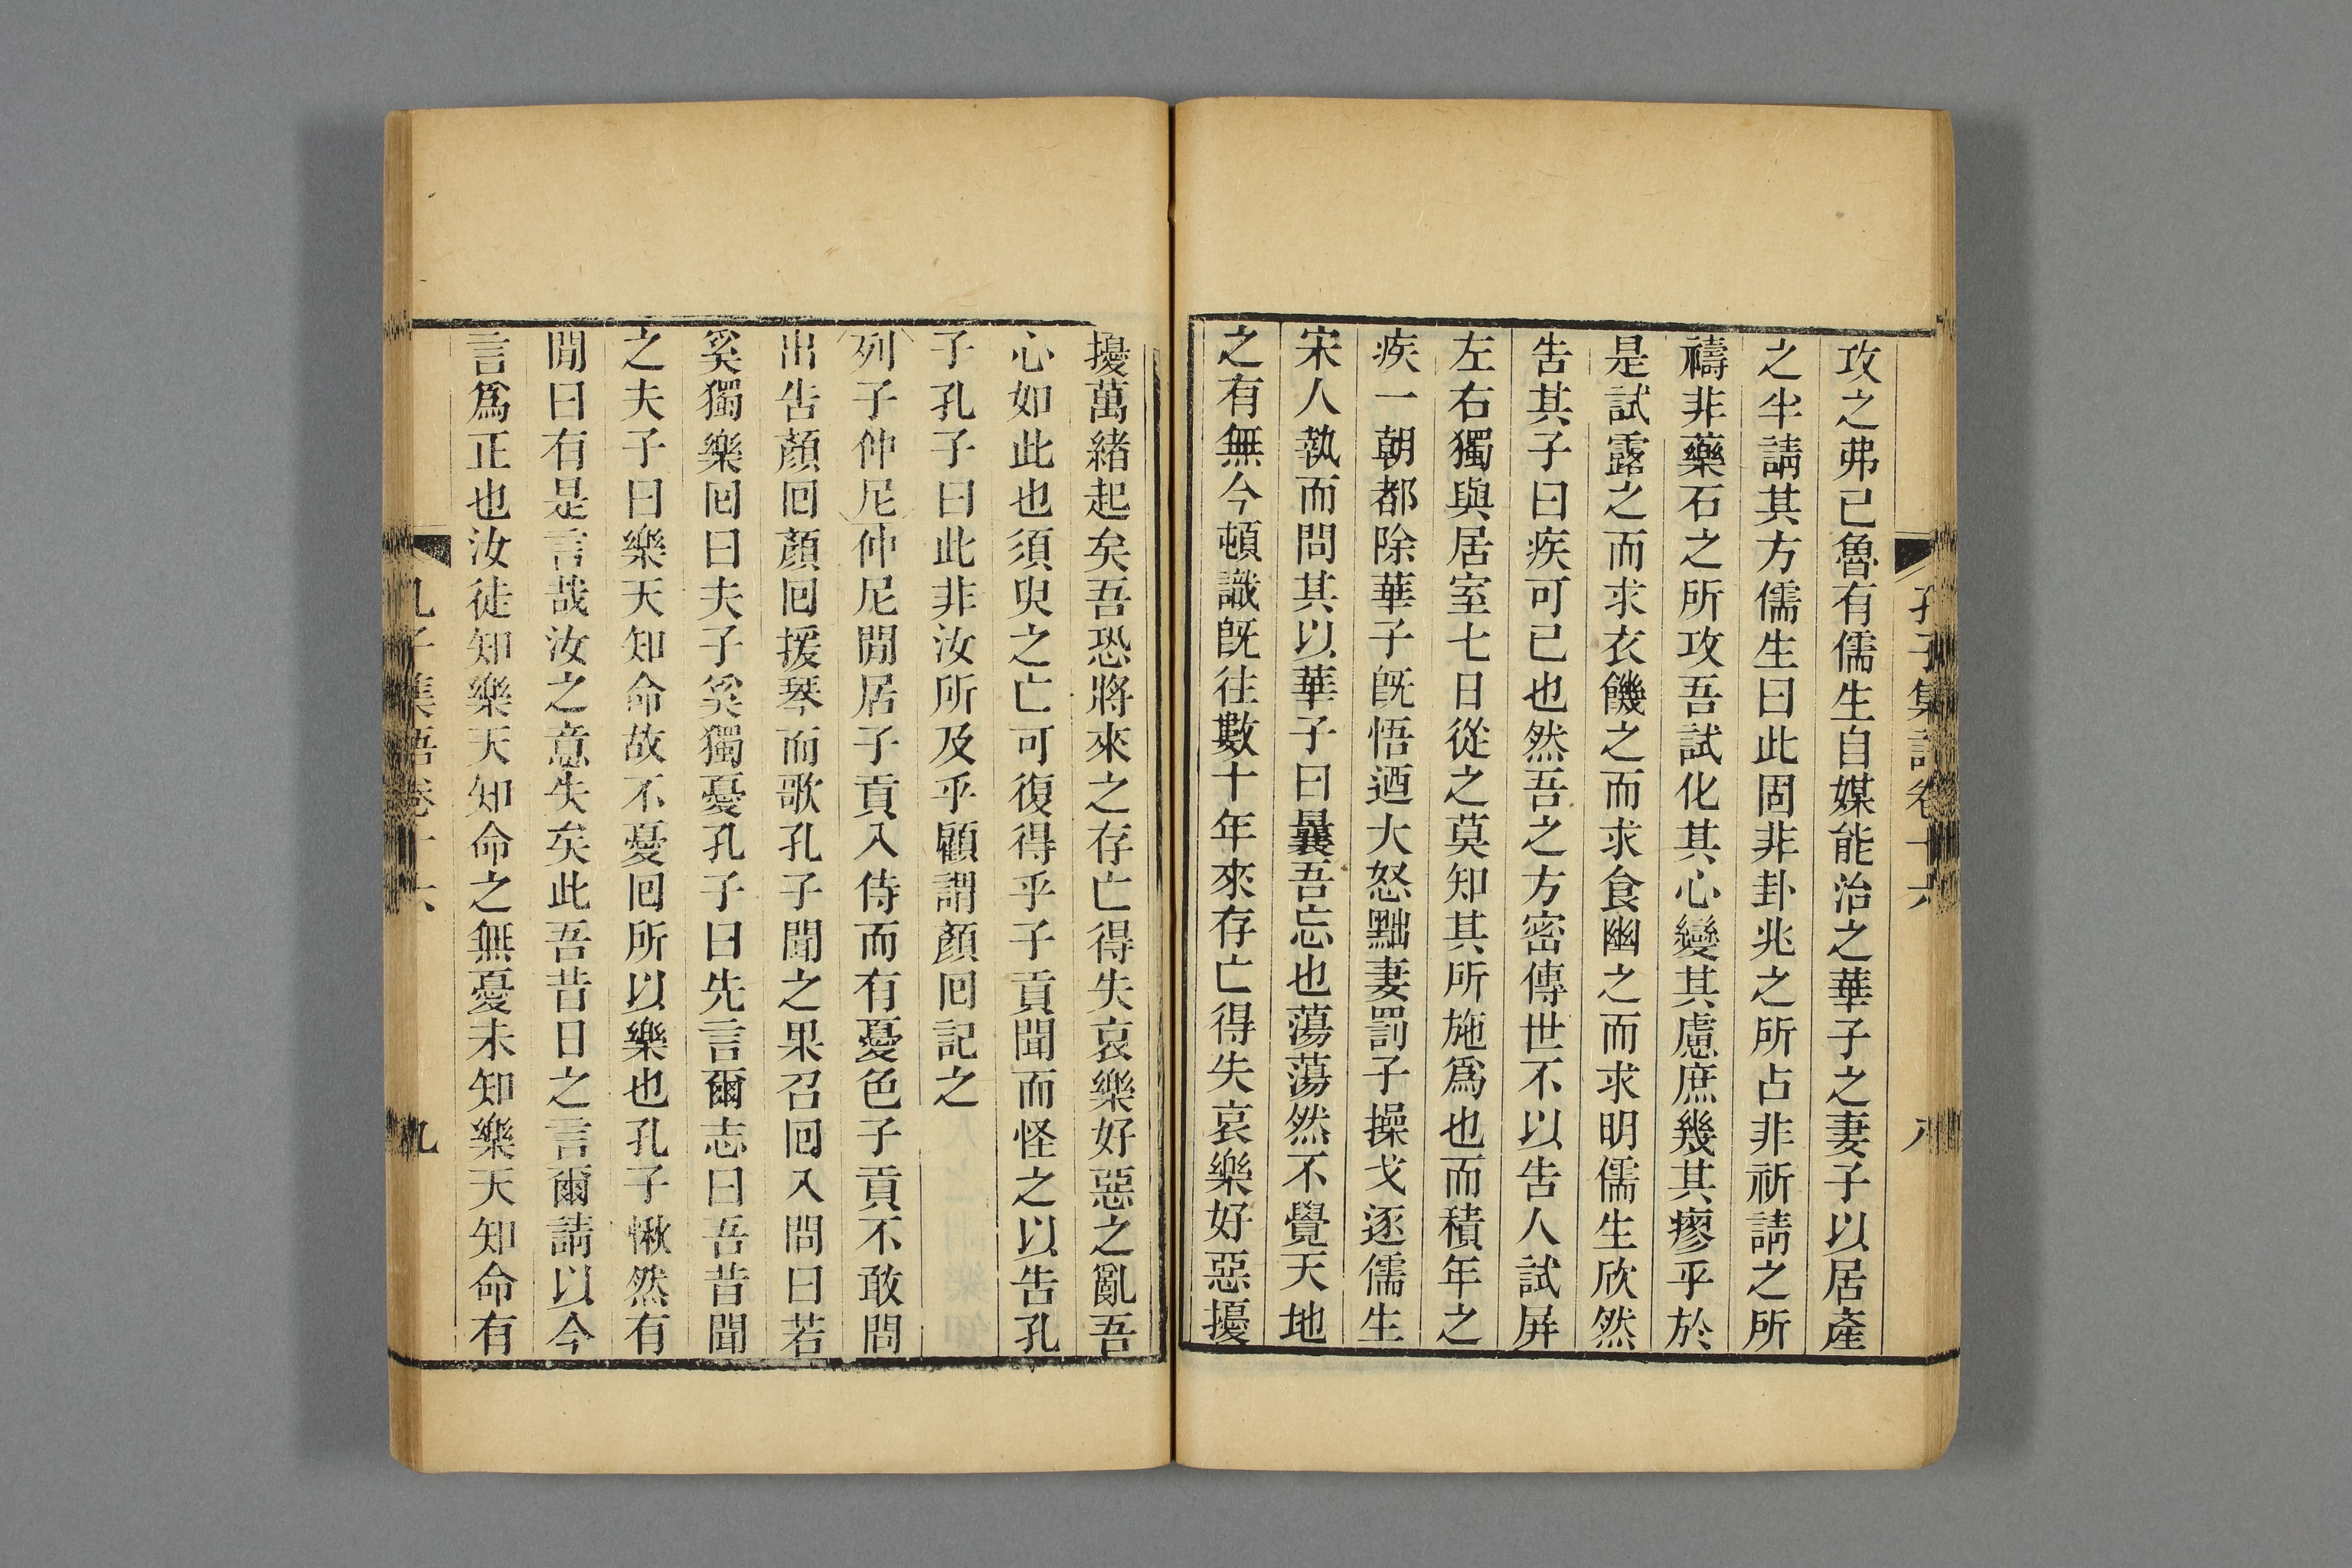 孔子集語卷十六 八
攻之弗已魯有儒生自媒能治之華子之妻子以居產
之半請其方儒生曰此固非卦兆之所占非祈請之所
禱非藥石之所攻吾試化其心變其慮庶幾其瘳乎於
是試露之而求衣饑之而求食幽之而求明儒生欣然
告其子曰疾可已也然吾之方密傳世不以告人試屏
左右獨與居室七日從之莫知其所施爲也而積年之
疾一朝都除華子旣悟迺大怒黜妻罰子操戈逐儒生
宋人執而問其以華子曰曩吾忘也蕩蕩然不覺天地
之有無今頓識旣往數十年來存亡得失哀樂好惡擾
擾萬緒起矣吾恐將來之存亡得失哀樂好惡之亂吾
心如此也須臾之亡可復得乎子貢聞而怪之以告孔
子孔子曰此非汝所及乎顧謂顏回記之
列子仲尼仲尼閒居子貢入侍而有憂色子貢不敢問
出告顏回顏回援琴而歌孔子聞之果召回入問曰若
奚獨樂回曰夫子奚獨憂孔子曰先言爾志曰吾昔聞
之夫子曰樂天知命故不憂回所以樂也孔子愀然有
閒曰有是言哉汝之意失矣此吾昔日之言爾請以今
言爲正也汝徒知樂天知命之無憂未知樂天知命有
孔子集語卷十六 九